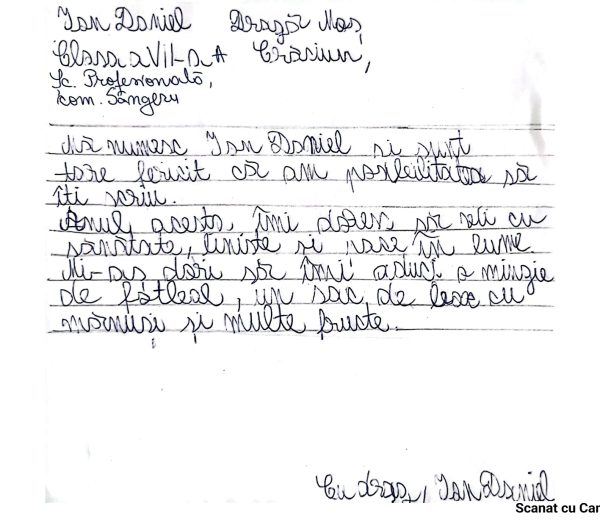 Ion Daniel Dragă Moș
Clasa a VII-a A Crăciun,
Sc. Profesională,
com. Sângeru
Mă numesc Ion Daniel si sunt
tare fericit că am posibilitatea să
îti scriu.
Anul acesta, îmi doresc să fii cu
sănătate, liniste si pace în lume.
Mi-as dori să îmi aduci o mingie
de fotbal, un sac de box cu
mănusi și multe fructe.
Cu drag, Ion Daniel
Scanat cu Car